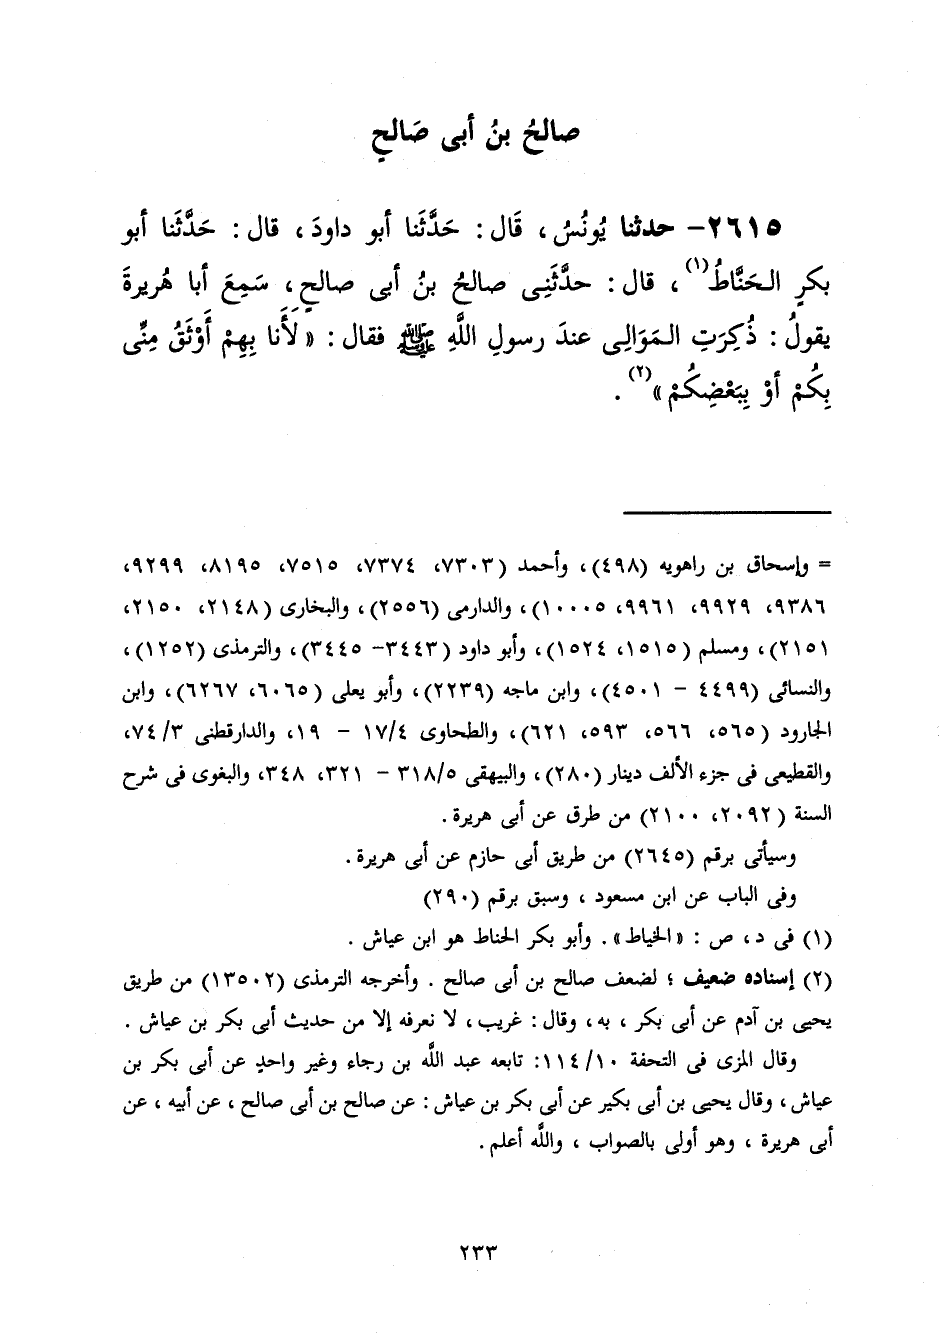 صالحُ بنُ أبى صَالحٍ
٢٦١٥- حدثنا يُونُسُ، قَال: حَدَّثَنا أبو داودَ، قال: حَدَّثَنا أبو
بكرٍ الـحَنَّاطُ(١)، قال: حدَّثَنِى صالحُ بنُ أبى صالحٍ، سَمِعَ أبا هُريرةَ
يقولُ: ذُكِرَتِ الـمَوَالِى عندَ رسولِ اللَّهِ ﷺ فقال: «لَأَنا بِهِمْ أَوْثَقُ مِنِّى
بِكُمْ أوْ بِبَعْضِكُمْ»(٢).
= وإسحاق بن راهويه (٤٩٨)، وأحمد (٧٣٠٣، ٧٣٧٤، ٧٥١٥، ٨١٩٥، ٩٢٩٩،
٩٣٨٦، ٩٩٢٩، ٩٩٦١، ١٠٠٠٥)، والدارمى (٢٥٥٦)، والبخارى (٢١٤٨، ٢١٥٠،
٢١٥١)، ومسلم (١٥١٥، ١٥٢٤)، وأبو داود (٣٤٤٣- ٣٤٤٥)، والترمذى (١٢٥٢)،
والنسائى (٤٤٩٩ - ٤٥٠١)، وابن ماجه (٢٢٣٩)، وأبو يعلى (٦٠٦٥، ٦٢٦٧)، وابن
الجارود (٥٦٥، ٥٦٦، ٥٩٣، ٦٢١)، والطحاوى ١٧/٤ - ١٩، والدارقطنى ٧٤/٣،
والقطيعى فى جزء الألف دينار (٢٨٠)، والبيهقى ٣١٨/٥ - ٣٢١، ٣٤٨، والبغوى فى شرح
السنة (٢٠٩٢، ٢١٠٠) من طرق عن أبى هريرة.
وسيأتى برقم (٢٦٤٥) من طريق أبى حازم عن أبى هريرة.
وفى الباب عن ابن مسعود، وسبق برقم (٢٩٠)
(١) فى د، ص: «الخياط». وأبو بكر الحناط هو ابن عياش.
(٢) إسناده ضعيف؛ لضعف صالح بن أبى صالح. وأخرجه الترمذى (١٣٥٠٢) من طريق
يحيى بن آدم عن أبى بكر، به، وقال: غريب، لا نعرفه إلا من حديث أبى بكر بن عياش.
وقال المزى فى التحفة ١١٤/١٠: تابعه عبد اللَّه بن رجاء وغير واحدٍ عن أبى بكر بن
عياش، وقال يحيى بن أبى بكير عن أبى بكر بن عياش: عن صالح بن أبى صالح، عن أبيه، عن
أبى هريرة، وهو أولى بالصواب، واللَّه أعلم.
٢٣٣